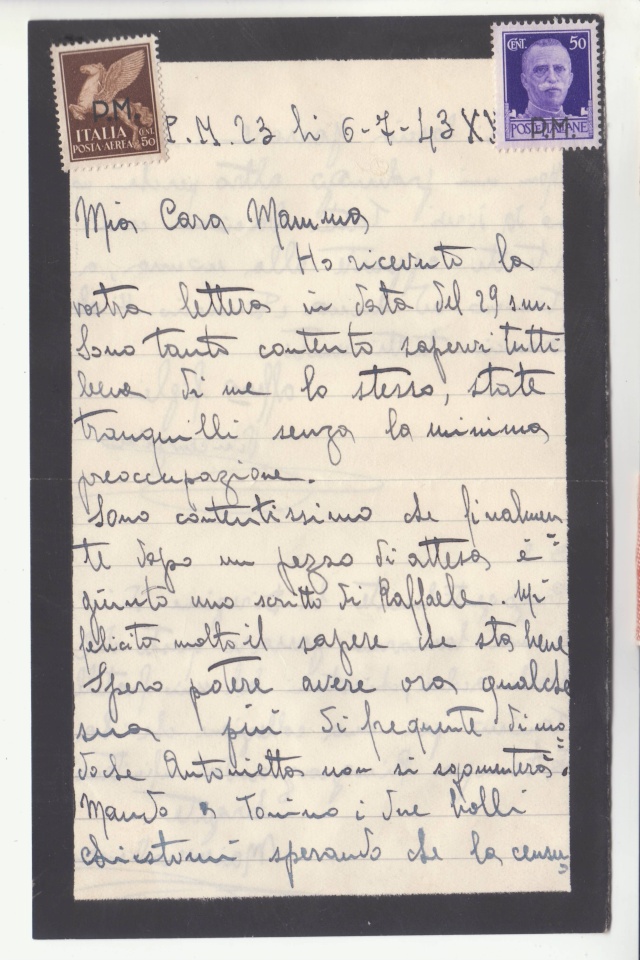 P.M.
ITALIA
POSTA AEREA
CENT. 50
CENT. 50
POSTE ITALIANE
P.M.
P.M. 23 li 6-7-43 XX
Mia Cara Mamma
Ho ricevuto la
vostra lettera in data del 29 s.m.
Sono tanto contento sapervi tutti
bene di me lo stesso, state
tranquilli senza la minima
preoccupazione.
Sono contentissimo che finalmen
te dopo un pezzo di attesa è
giunto uno scritto di Raffaele. Mi
felicita molto il sapere che sta bene
Spero potere avere ora qualche
sua più di frequente di mo
do che Antonietta non si sgomenterà.
Mando a Tonino i due bolli
chiestomi sperando che la censu